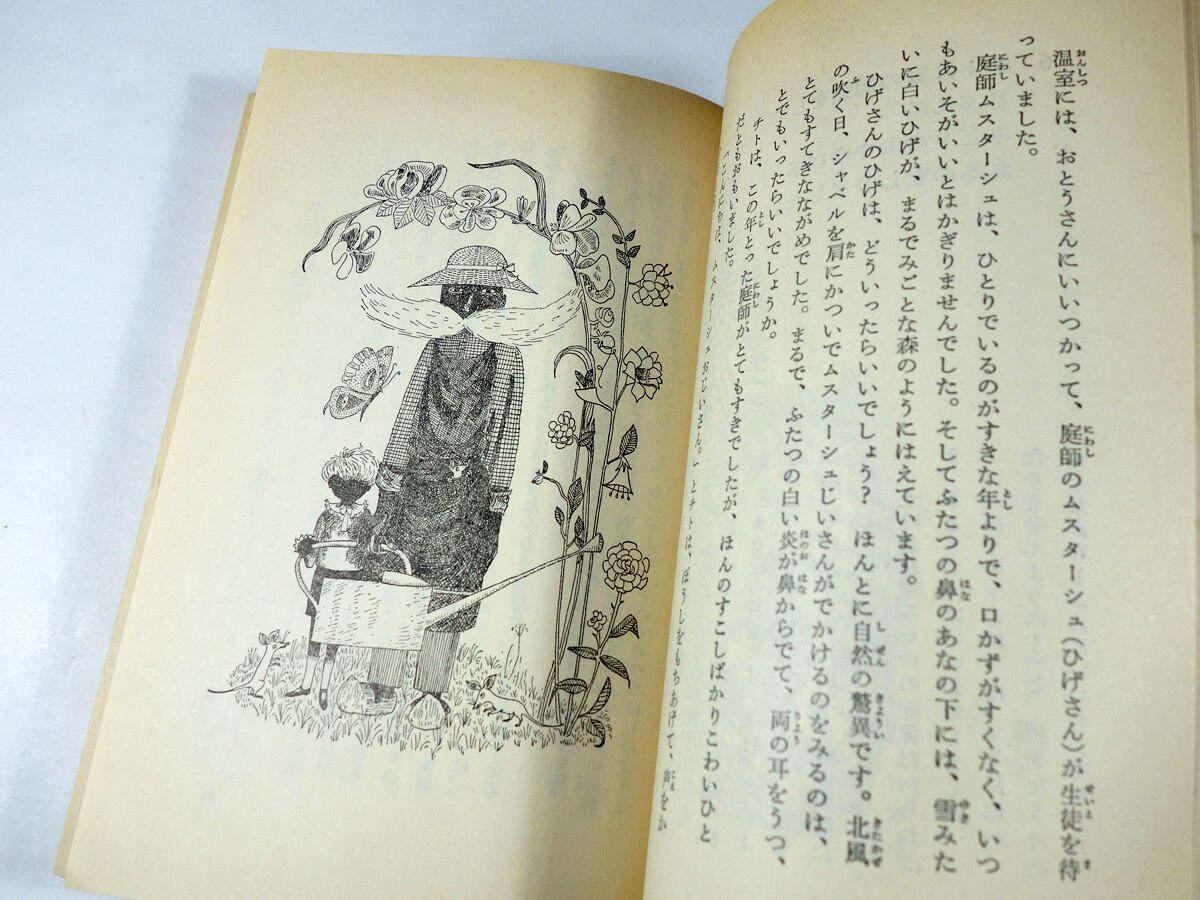 温室には、おとうさんにいいつかって、庭師のムスターシュ（ひげさん）が生徒を待
っていました。
庭師ムスターシュは、ひとりでいるのがすきな年よりで、口かずがすくなく、いつ
もあいそがいいとはかぎりませんでした。そしてふたつの鼻のあなの下には、雪みた
いに白いひげが、まるでみごとな森のようにはえています。
ひげさんのひげは、どういったらいいでしょう？　ほんとに自然の驚異です。北風
の吹く日、シャベルを肩にかついでムスターシュじいさんがでかけるのをみるのは、
とてもすてきなながめでした。まるで、ふたつの白い炎が鼻からでて、両の耳をうつ、
とでもいったらいいでしょうか。
チトは、この年とった庭師がとてもすきでしたが、ほんのすこしばかりこわいひと
だともおもいました。
「こんにちは、ムスターシュおじいさん。」とチトは、ぼうしをもちあげて、声をか